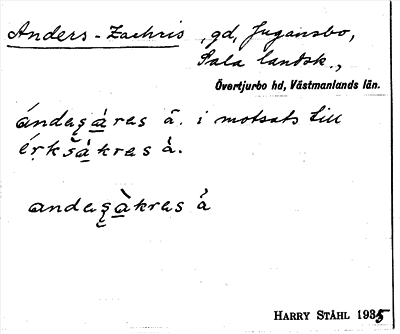 Anders-Zachris, gd, Jugansbo,
Sala landsk.,
Övertjurbo hd, Västmanlands län.
ándaşà̱ras ā. i motsats till
érkšà̱kras à.
andaşà̱kras à
HARRY STÅHL 1935